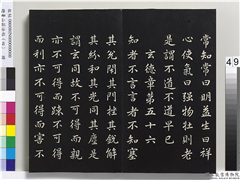 常知常曰明益生曰祥
心使氣曰强物壯則老
是謂不道不道早已
玄德章第五十六
知者不言言者不知塞
其兌閉其門挫其銳解
其紛和其光同其塵是
謂玄同故不可得而親
亦不可得而踈不可得
而利亦不可得而害不
49